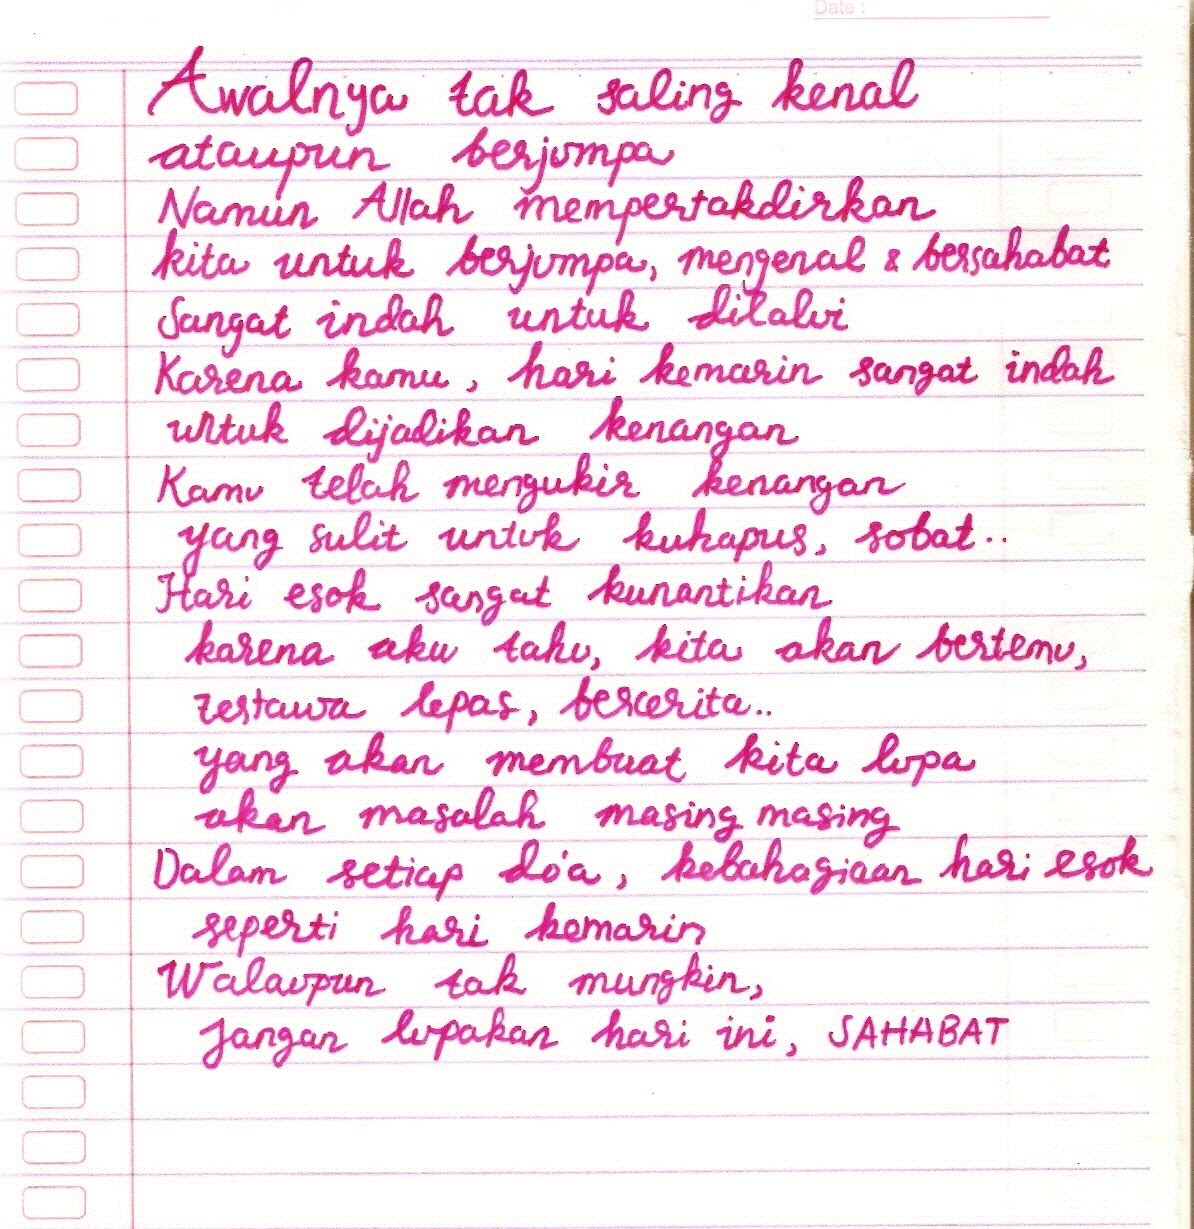 Date :
Awalnya tak saling kenal
ataupun berjumpa
Namun Allah mempertakdirkan
kita untuk berjumpa, mengenal & bersahabat
Sangat indah untuk dilalui
Karena kamu, hari kemarin sangat indah
untuk dijadikan kenangan
Kamu telah mengukir kenangan
yang sulit untuk kuhapus, sobat..
Hari esok sangat kunantikan
karena aku tahu, kita akan bertemu,
tertawa lepas, bercerita..
yang akan membuat kita lupa
akan masalah masing masing
Dalam setiap do'a, kebahagiaan hari esok
seperti hari kemarin
Walaupun tak mungkin,
jangan lupakan hari ini, SAHABAT